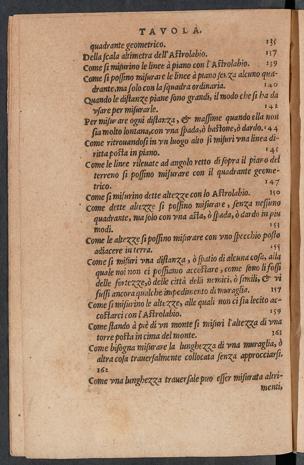 TAVOLA.
quadrante geometrico. 135
Della scala altimetra dell'Astrolabio. 137
Come si misurino le linee à piano con l'Astrolabio. 139
Come si possino misurare le linee à piano senza alcuno qua-
drante, ma solo con la squadra ordinaria. 140
Quando le distanze piane sono grandi, il modo che si ha da
vsare per misurarle. 142
Per misurare ogni distanza, & massime quando ella non
sia molto lontana, con vna spada, ò bastone, ò dardo. 144
Come ritrouandosi in vn luogo alto si misuri vna linea di-
ritta posta in piano. 145
Come le linee rileuate ad angolo retto di sopra il piano del
terreno si possino misurare con il quadrante geome-
trico. 147
Come si misurino dette altezze con lo Astrolabio. 150
Come dette altezze si possino misurare, senza nessuno
quadrante, ma solo con vna asta, ò spada, ò dardo in piu
modi. 153
Come le altezze si possino misurare con vno specchio posto
adiacere in terra. 155
Come si misuri vna distanza, ò spatio di alcuna cosa, alla
quale noi non ci possiamo accostare, come sono li fossi
delle fortezze, ò delle città nemici, ò simili, & vi
fussi ancora qualche impedimento di muraglia. 157
Come si misurino le altezze, alle quali non ci sia lecito ac-
costarci con l'Astrolabio. 159
Come stando à piè di vn monte si misuri l'altezza di vna
torre posta in cima del monte. 161
Come bisogna misurare la lunghezza di vna muraglia, ò
altra cosa trauersalmente collocata senza approcciarsi.
162
Come vna lunghezza trauersale puo esser misurata altri-
menti,